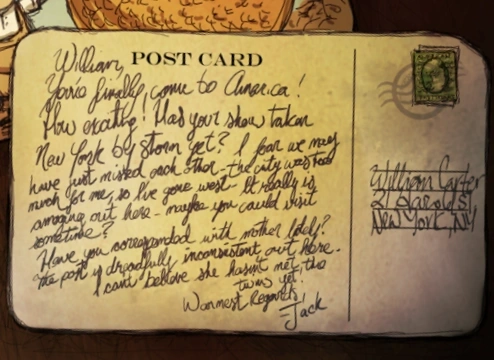 POST CARD
William,
You've finally come to America!
How exciting! Has your show taken
New York by storm yet? I fear we may
have just missed each other - the city was too
much for me, so I've gone west. It really is
amazing out here - maybe you could visit
sometime?
Have you corresponded with mother lately?
The post is dreadfully inconsistent out here -
I can't believe she hasn't met the
twins yet!
Warmest Regards,
-Jack
William Carter
21 St
New York, NY